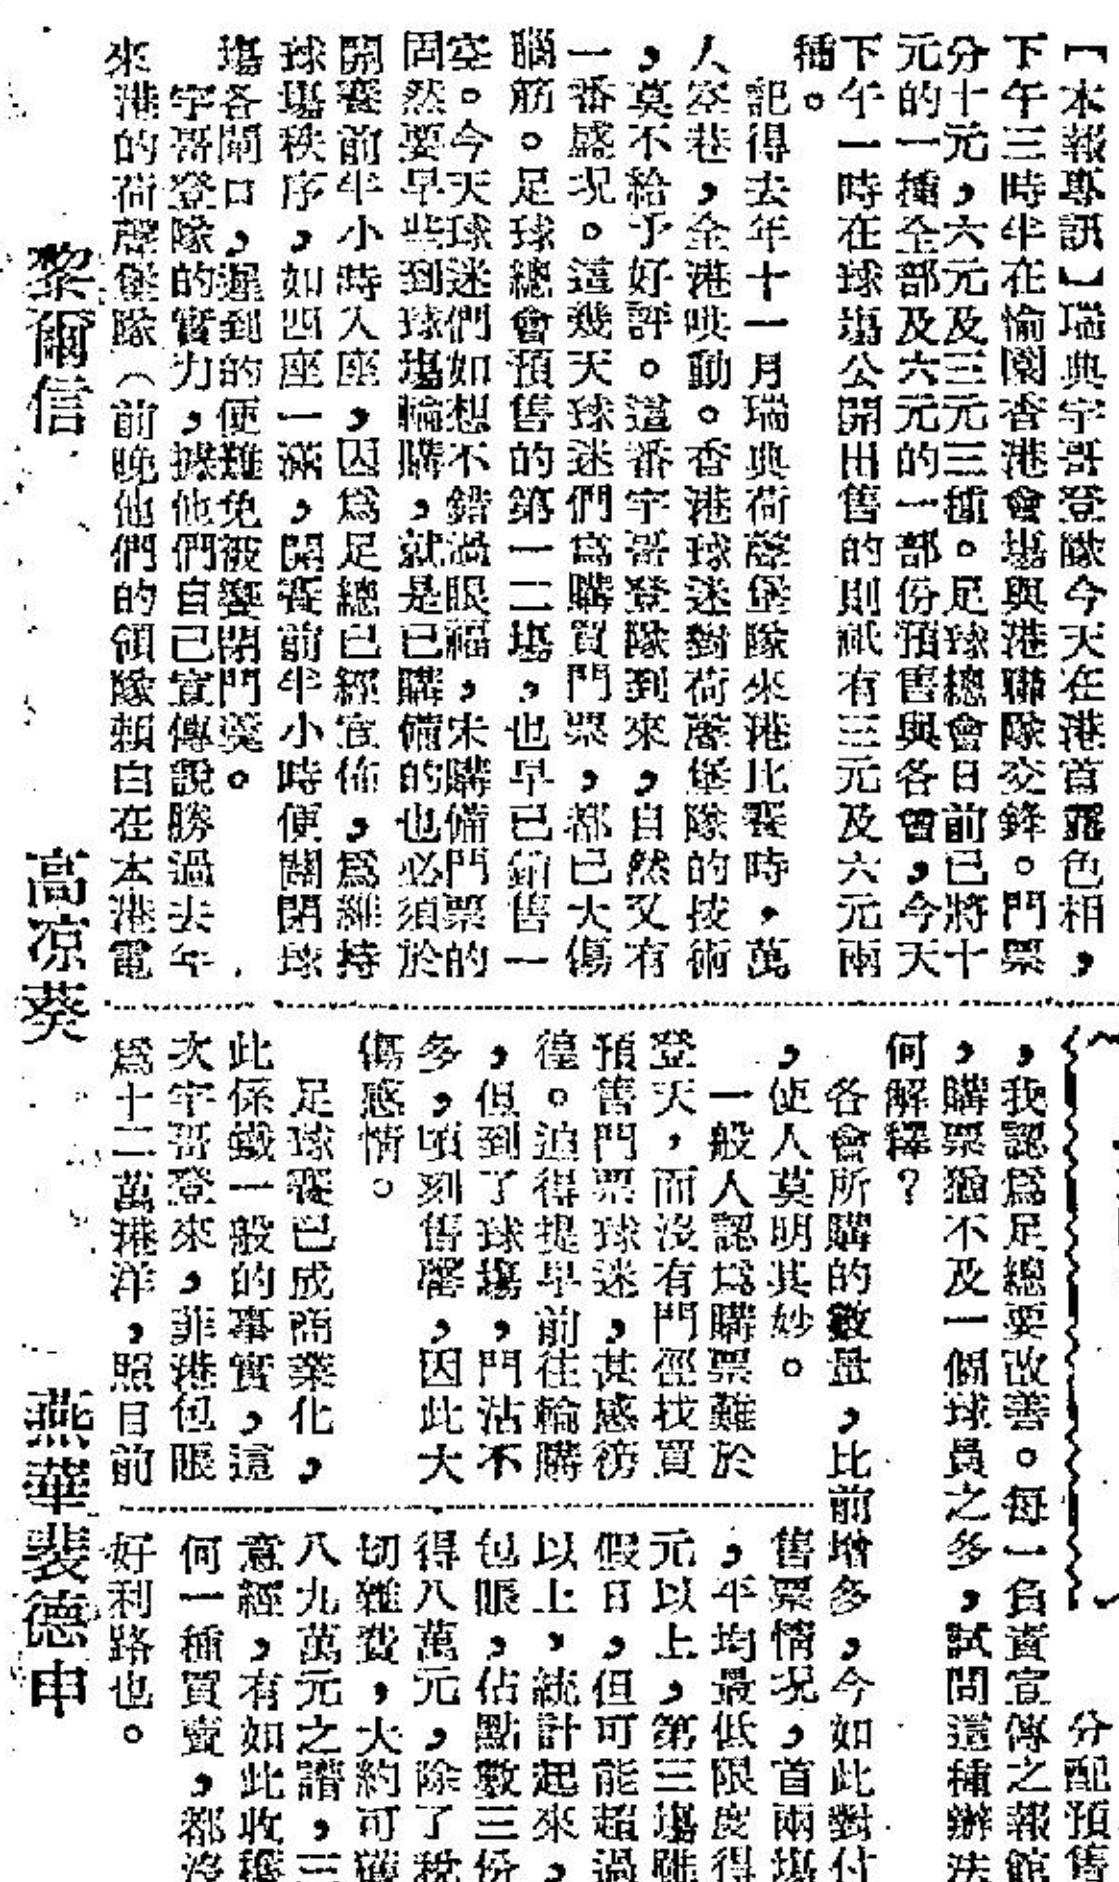 【本報專訊】瑞典宇哥登隊今天在港首露色相，
下午三時半在愉園香港會場與港聯隊交鋒。門票
分十元，六元及三元三種。足球總會日前已將十
元的一種全部及六元的一部份預售與各會，今天
下午一時在球場公開出售的則祇有三元及六元兩
種。
記得去年十一月瑞典荷聲堡隊來港比賽時，萬
人空巷，全港哄動。香港球迷對荷聲堡隊的技術
，莫不給予好評。這番宇哥登隊到來，自然又有
一番盛况。這幾天球迷們爲購買門票，都已大傷
腦筋。足球總會預售的第一二場，也早已銷售一
空。今天球迷們如想不錯過眼福，未購備門票的
固然要早些到球場輪購，就是已購備的也必須於
開賽前半小時入座，因爲足總已經宣佈，爲維持
球場秩序，如四座一滿，開賽前半小時便關閉球
場各閘口，遲到的便難免被饗閉門羹。
宇哥登隊的實力，據他們自已宣傳說勝過去年
來港的荷聲堡隊（前晚他們的領隊賴白在本港電
黎爾信
高凉葵
燕華裴德申
分配預售
，我認爲足總要改善。每一負責宣傳之報館
，購票猶不及一個球員之多，試問這種辦法
何解釋？
各會所購的數量，比前增多，今如此對付
，使人莫明其妙。
一般人認爲購票難於
登天，而沒有門徑找買
預售門票球迷，甚感徬
徨。迫得提早前往輪購
，但到了球場，門沽不
多，頃刻售罄，因此大
傷感情。
足球賽已成商業化，
此係鐵一般的事實，這
次宇哥登來，非港包賬
爲十二萬港洋，照目前
售票情况，首兩場
，平均最低限度得
元以上，第三場雖
假日，但可能超過
以上，統計起來，
包賬，佔點數三份
得八萬元，除了稅
切雜費，大約可獲
八九萬元之譜，三
意經，有如此收穫
何一種買賣，都沒
好利路也。